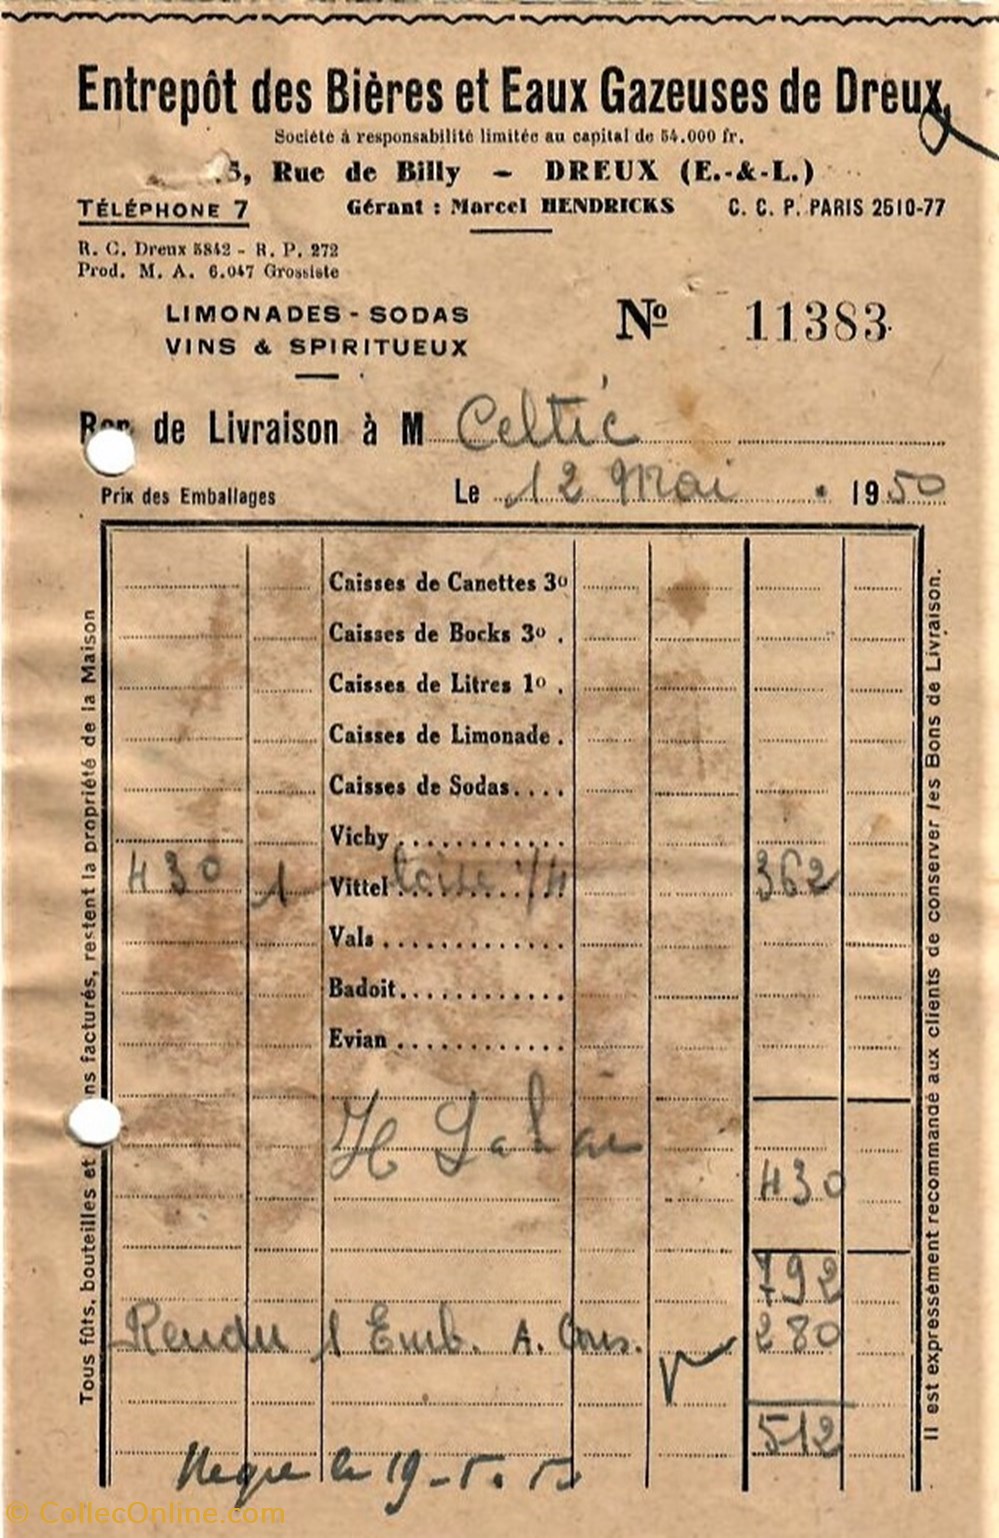 Entrepôt des Bières et Eaux Gazeuses de Dreux
Société à responsabilité limitée au capital de 54.000 fr.
5, Rue de Billy - DREUX (E.-&-L.)
TÉLÉPHONE 7 Gérant : Marcel HENDRICKS C. C. P. PARIS 2510-77
R. C. Dreux 5842 - R. P. 272
Prod. M. A. 6.047 Grossiste
LIMONADES - SODAS
VINS & SPIRITUEUX
Nº 11383
Bon de Livraison à M Celtic
Prix des Emballages Le 12 Mai 1950
Caisses de Canettes 3º
Caisses de Bocks 3º .
Caisses de Litres 1º .
Caisses de Limonade .
Caisses de Sodas....
Vichy............
430 1 Vittel 1/4 362
Vals............
Badoit............
Evian............
430
792
Rendu 1 Emb. A. Cons. 280
512
le 19-5.5
Tous fûts, bouteilles et ns facturés, restent la propriété de la Maison
Il est expressément recommandé aux clients de conserver les Bons de Livraison.
© CollecOnline.com